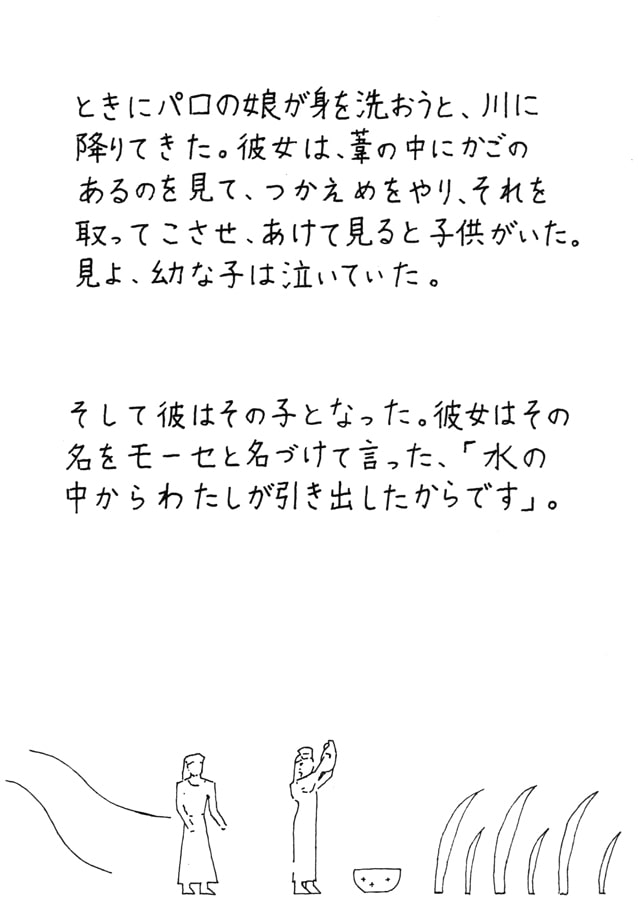 ときにパロの娘が身を洗おうと、川に
降りてきた。彼女は、葦の中にかごの
あるのを見て、つかえめをやり、それを
取ってこさせ、あけて見ると子供がいた。
見よ、幼な子は泣いていた。
そして彼はその子となった。彼女はその
名をモーセと名づけて言った、「水の
中からわたしが引き出したからです」。